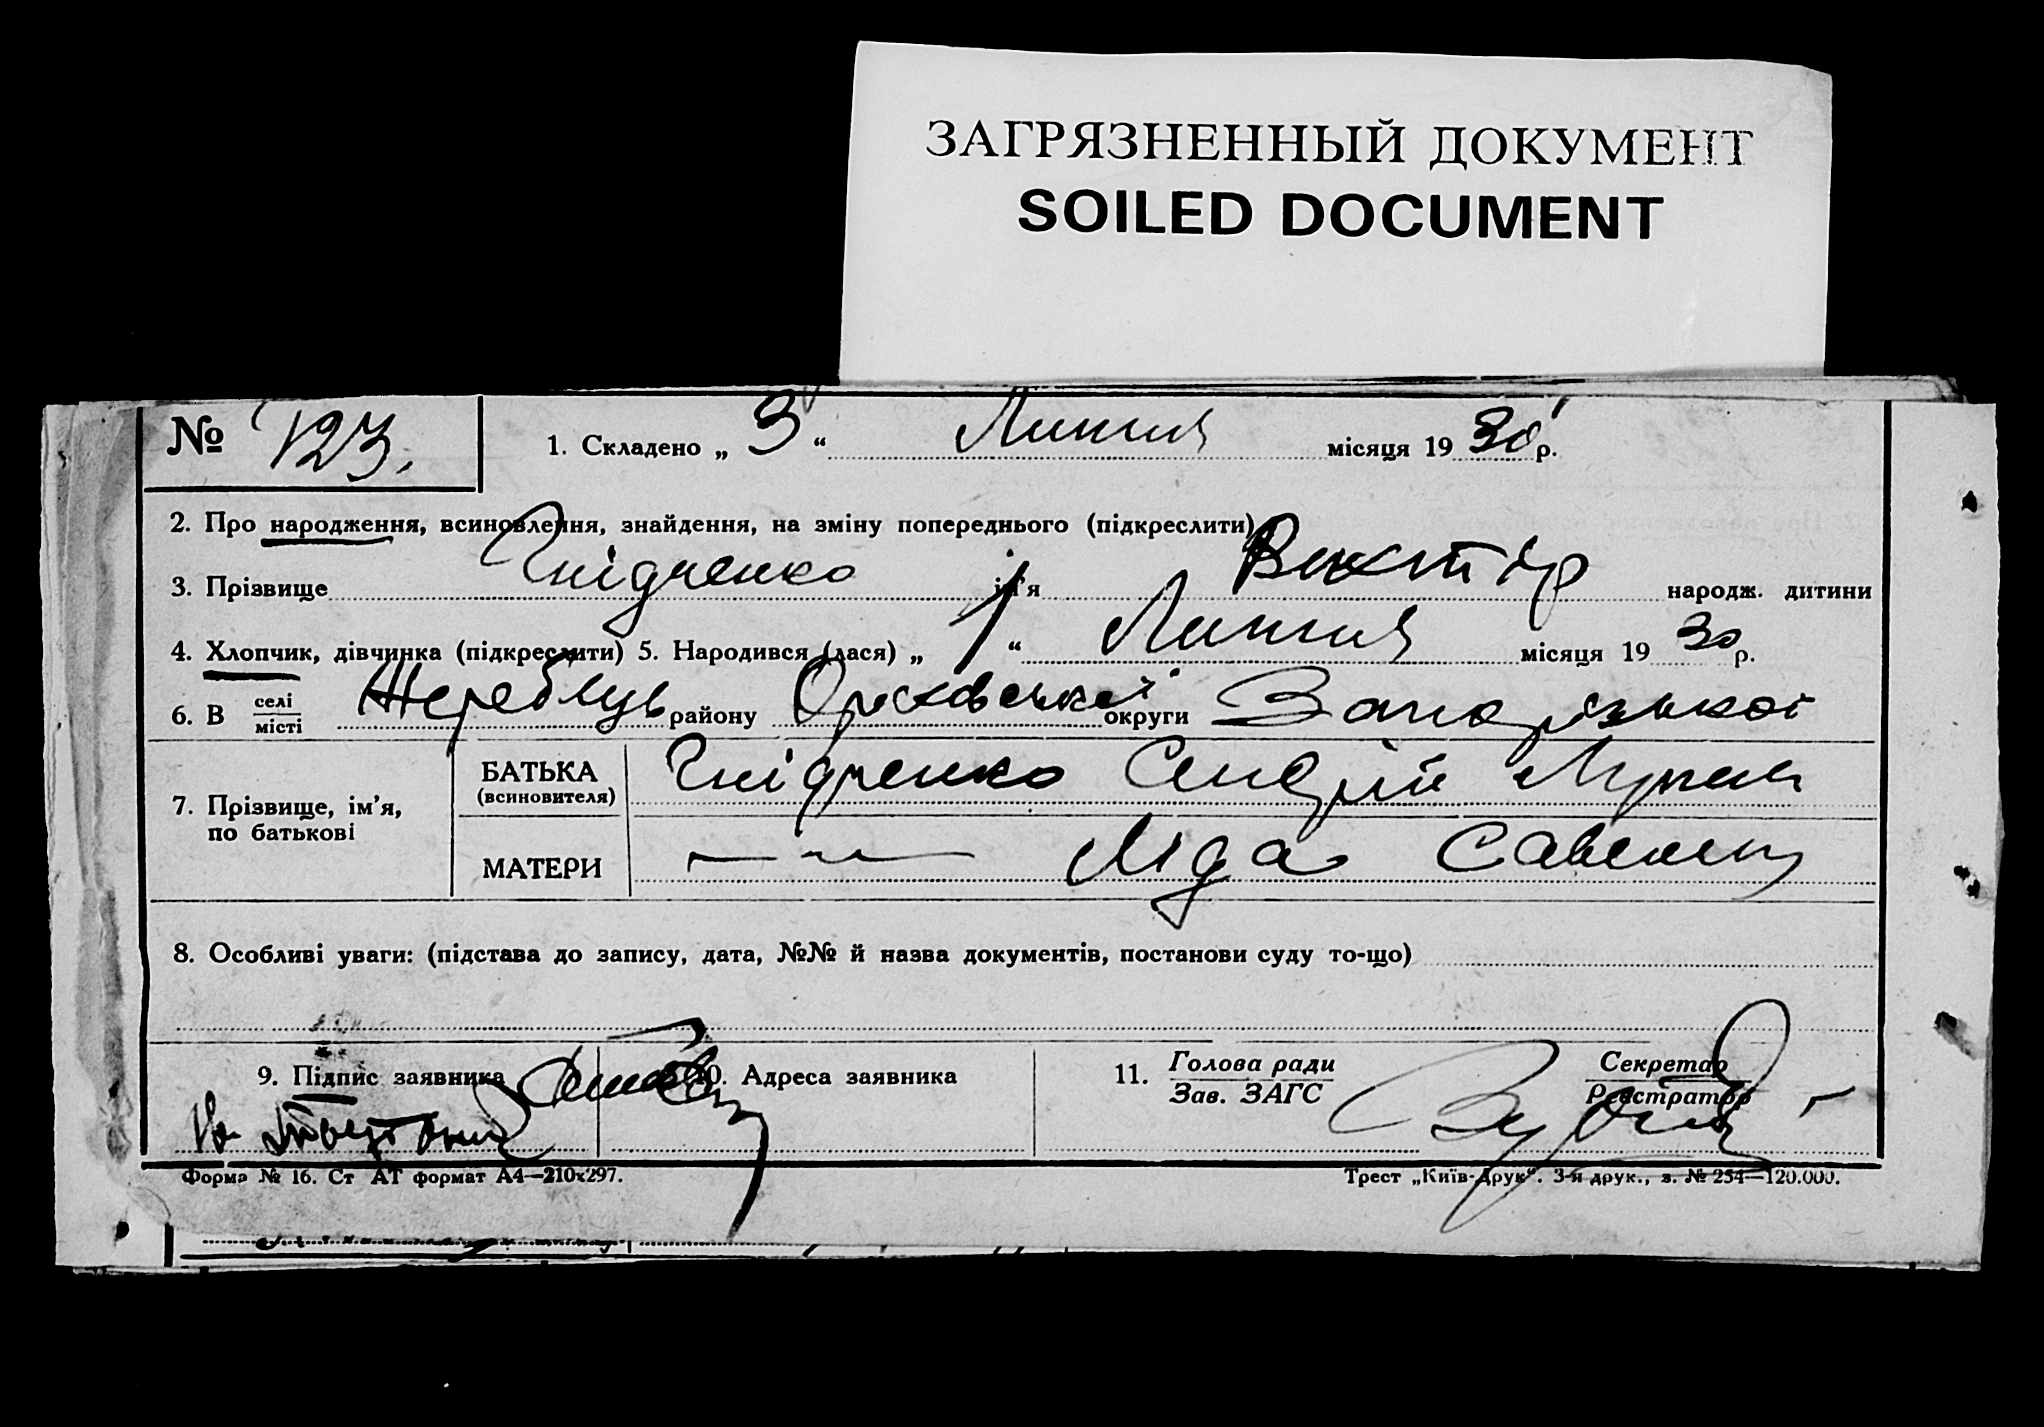 ЗАГРЯЗНЕННЫЙ ДОКУМЕНТ
SOILED DOCUMENT
№ 123.
1. Складено „ 3 “ Липня місяця 1930 р.
2. Про народження, всиновлення, знайдення, на зміну попереднього (підкреслити)
3. Прізвище Гнідченко ім'я Віктір народж. дитини
4. Хлопчик, дівчинка (підкреслити) 5. Народився (лася) „ 1 “ Липня місяця 1930 р.
6. В селі місті Жеребець району Оріхівської округи Запорізької
7. Прізвище, ім’я, по батькові
БАТЬКА (всиновителя) Гнідченко
МАТЕРИ —„— Ліда Савел
8. Особливі уваги: (підстава до запису, дата, №№ й назва документів, постанови суду то-що)
9. Підпис заявника 10. Адреса заявника 11. Голова ради Зав. ЗАГС Секретар Реєстратор
Форма № 16. Ст АТ формат А4—210x297. Трест „Київ-Друк“. 3-я друк., з. № 254—120.000.